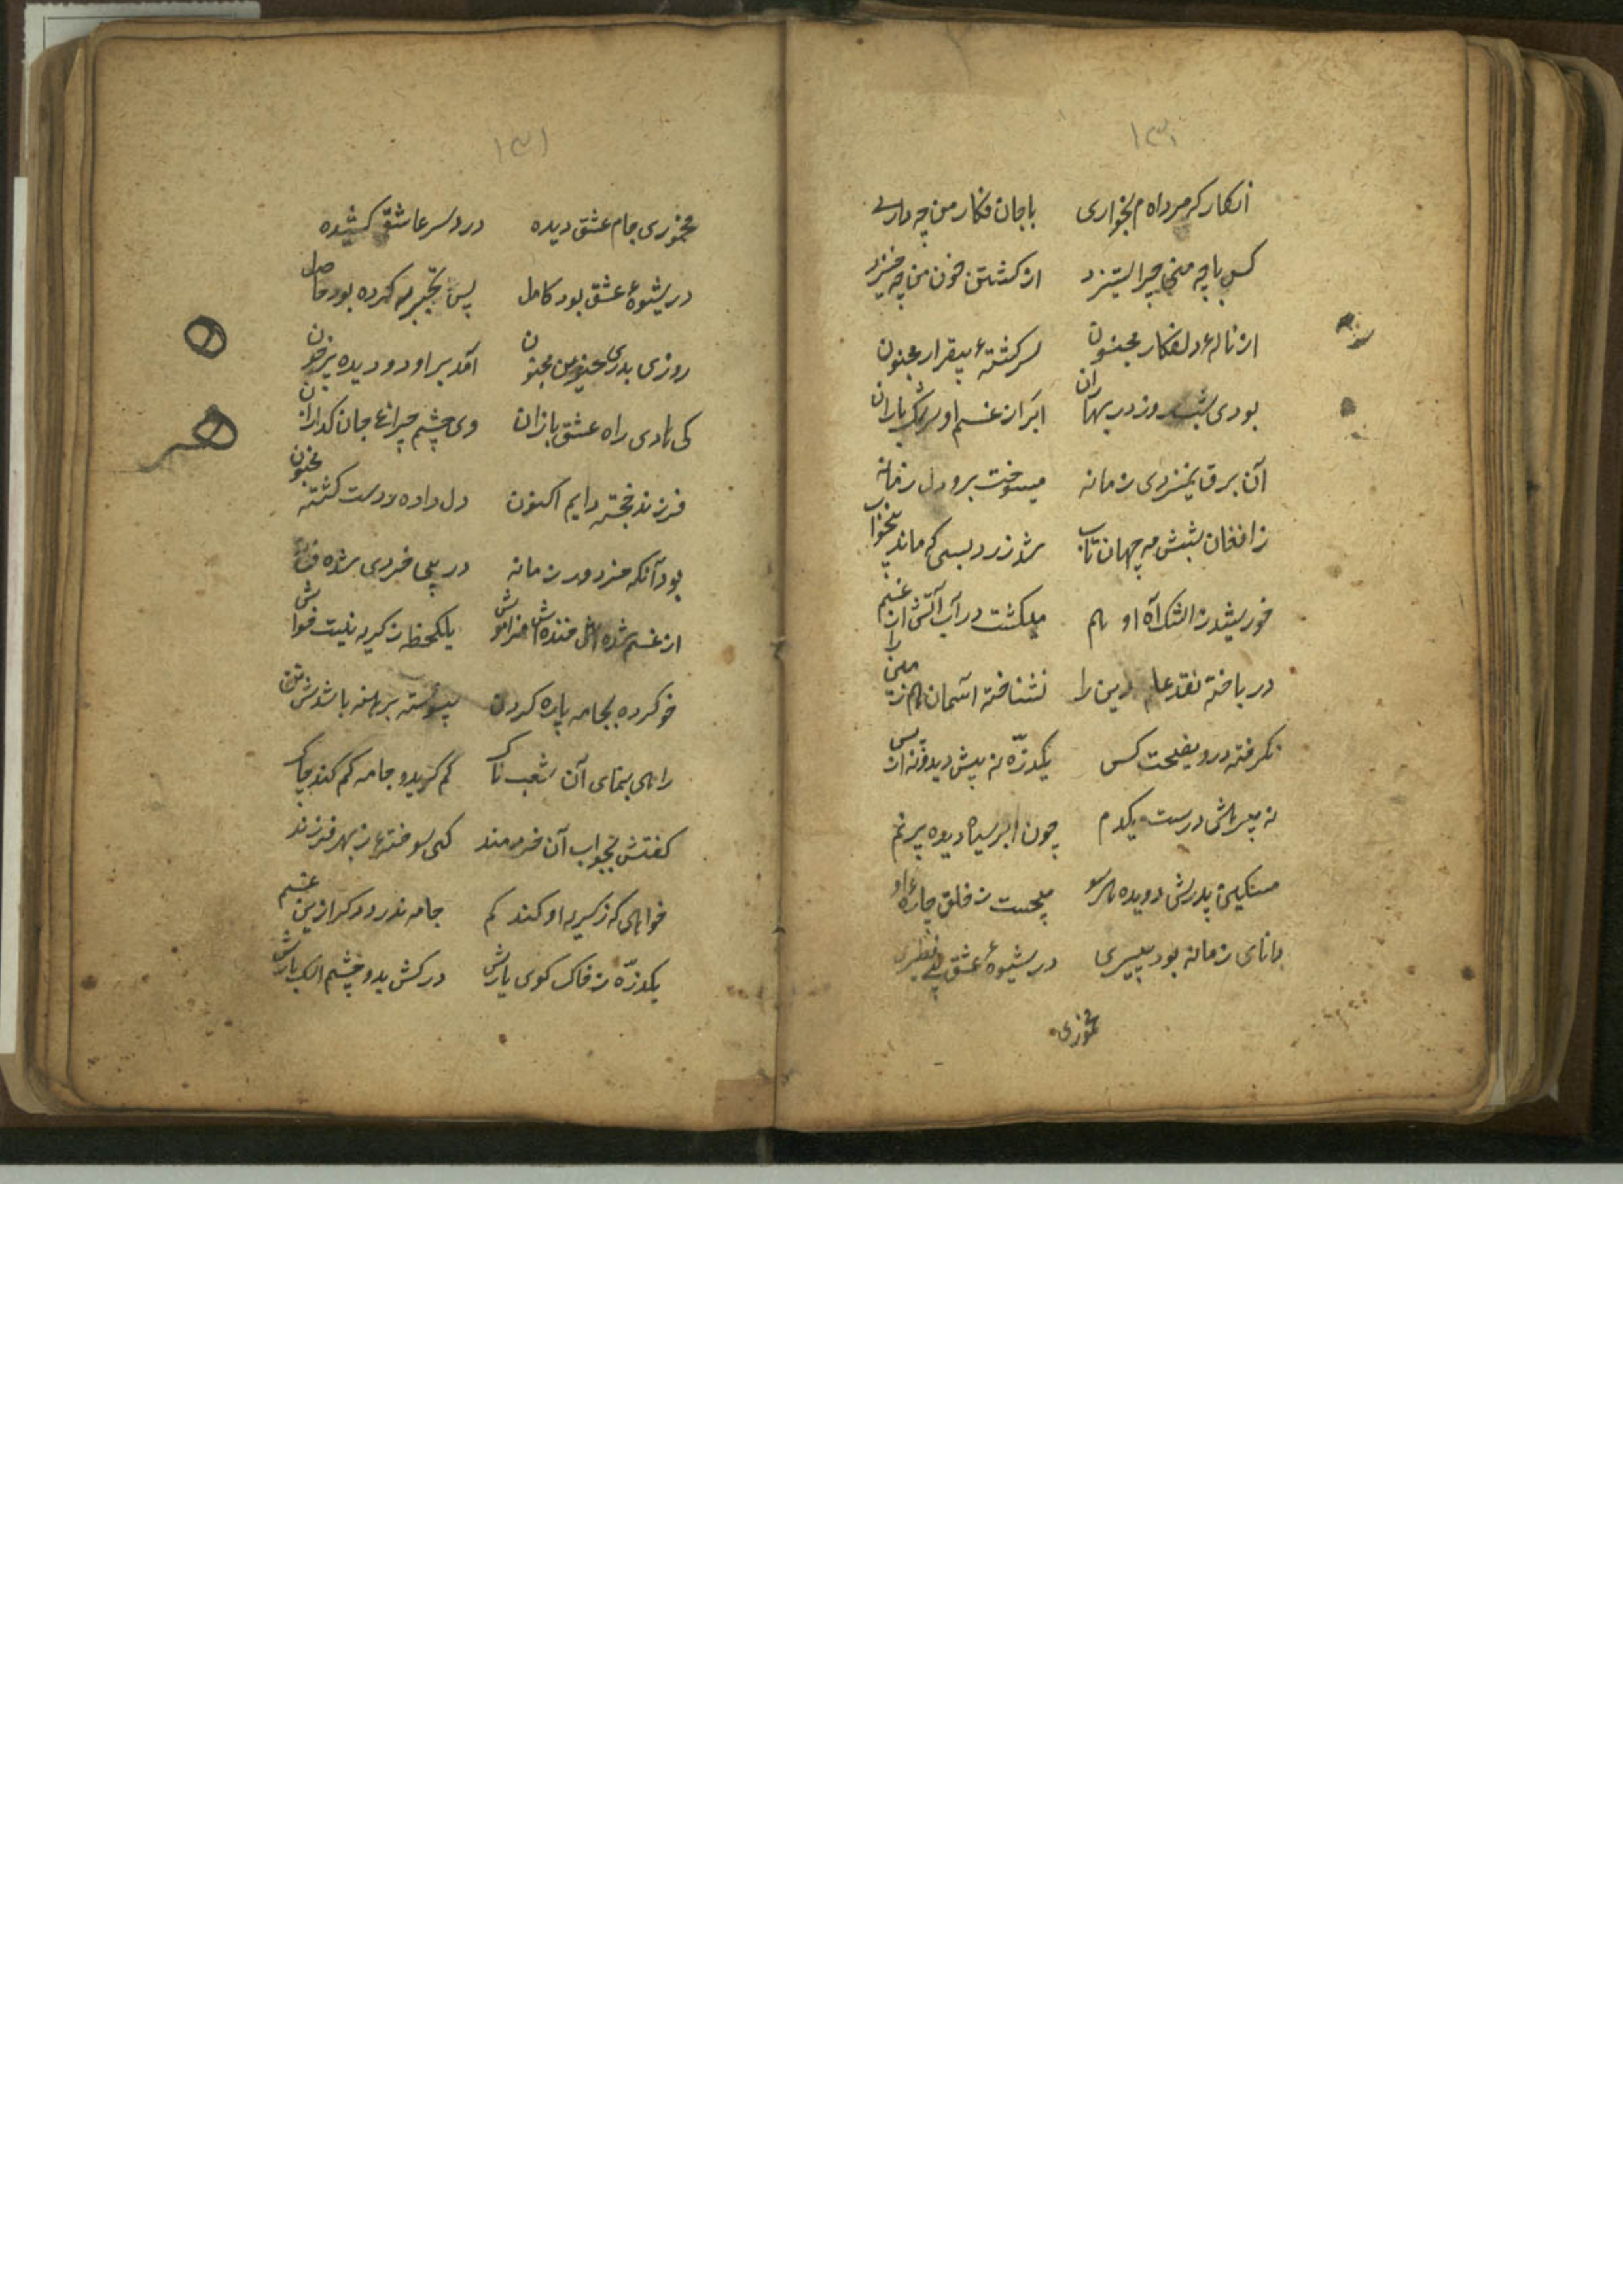 ۱۳۰
انکار که مرده‌ام بخواری با جان فکار من چه داری
کس با چو منی چرا ستیزد از کشتن خون من چه خیزد
از ناله دلفکار مجنون سرکشته بیقرار مجنون
بودی شب و روز در بهاران ابر از غم او سرشک باران
آن برق نمیزدی زمانه میسوخت برو دل زمانه
ز افغان شبش مه جهان تاب شد زرد بسی که ماند بیخواب
خورشید ز اشک و آه او هم میکشت در آب آتش از غم
در باخته نقد عالم دین را نشناخته آسمان زمین را
نکرفته درو نصیحت کس یکذره نه پیش دیده نه از پس
نه پیرهنش درست یکدم چون ابر سیاه دیده پر نم
مسکین پدرش دویده هر سو میجست ز خلق چاره او
دانای زمانه بود پیری در شیوه عشق بی نظیری
مخموری
۱۳۱
مخموری جام عشق دیده درد سر عاشقی کشیده
در شیوه عشق بود کامل پس تجربه کرده بود حاصل
روزی پدر حزین مجنون آمد بر او دو دیده پر خون
کی هادی راه عشق بازان وی چشم چراغ جان کدازان
فرزند خجسته رایم اکنون دل داده ز دست کشته مجنون
بود آنکه خرد ور زمانه در بی خردی شده فسانه
از غم شده خنده اش فراموش یکلحظه ز کریه نیست خواموش
خو کرده بجامه پاره کردن پیوسته برهنه باشدش تن
راهی بنمای آن شعب ناک کم کرید و جامه کم کند چاک
کفتش بجواب آن خردمند کی سوخته ز بهر فرزند
خواهی که ز کریه او کند کم جامه ندرد دکر ازین غم
یکذره ز خاک کوی یارش در کش بدو چشم اشکبارش